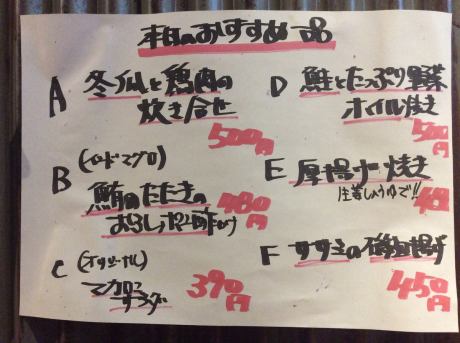 本日のおすすめ一品
A 冬瓜と鶏肉の
炊き合せ
500円
B 鮪のたたきの
おろしポン酢かけ
480円
C (オリジナル)
マカロニ
サラダ
390円
D 鮭とたっぷり野菜
ホイル焼き
500円
E 厚揚げ焼き
生姜じょうゆで!!
F すずきの磯辺揚げ
450円